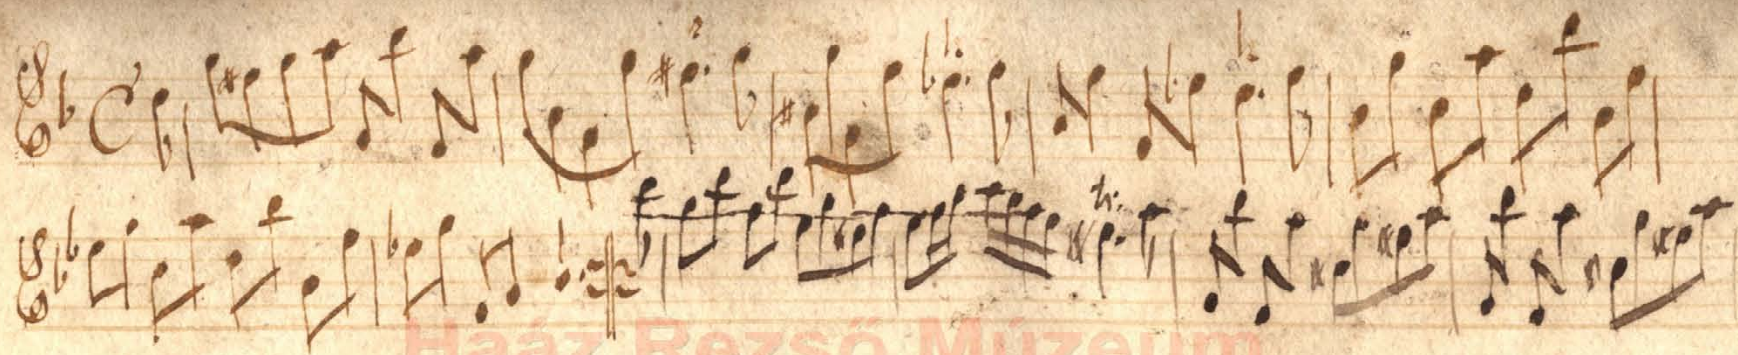 Haáz Rezső Múzeum